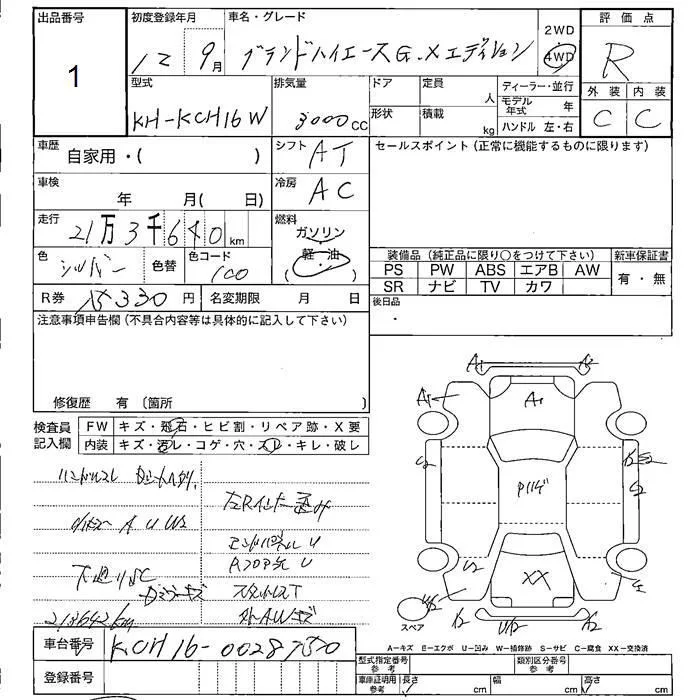 出品番号
1
初度登録年月
12 9月
車名・グレード
グランドハイエースG.Xエディション
2WD
4WD
評価点
R
外装 内装
C C
型式
KH-KCH16W
排気量
3000cc
ドア
定員
人
形状
積載
kg
ディーラー・並行
モデル年式 年
ハンドル 左・右
車歴
自家用・( )
シフト
AT
セールスポイント (正常に機能するものに限ります)
車検
年 月( 日)
冷房
AC
走行
21万3千640km
燃料
ガソリン
軽・油
( )
色
シルバー
色替
色コード
100
装備品 (純正品に限り○をつけて下さい)
新車保証書
PS PW ABS エアB AW
SR ナビ TV カワ
有・無
R券
円
名変期限 月 日
後日品
注意事項申告欄 (不具合内容等は具体的に記入して下さい)
修復歴 有 (箇所 )
検査員記入欄
FW キズ・飛石・ヒビ割・リペア跡・X要
内装 キズ・汚レ・コゲ・穴・スレ・キレ・破レ
ハンドルスレ
左Rインナー歪み
エンドパネル U
Rフロア先 U
下廻りSC
スタットレスT
213642km
外AWキズ
A1 A2
A1
A1
U2
U2
Pハゲ
XX
スペア
A-キズ E-エクボ U-凹み W-補修跡 S-サビ C-腐食 XX-交換済
車台番号
KCH16-0028750
登録番号
型式指定番号 参考
類別区分番号 参考
車庫証明用 参考
長さ cm
幅 cm
高さ cm